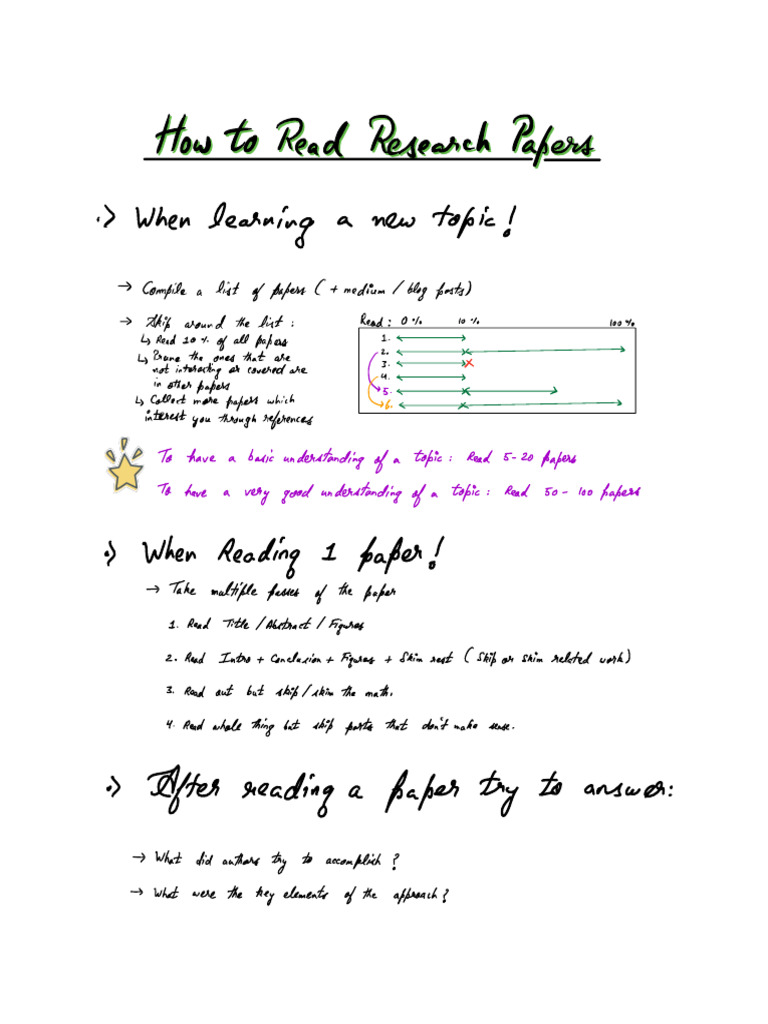 How to Read Research Papers
·> When learning a new topic!
→ Compile a list of papers ( + medium / blog posts)
→ Skip around the list :
↳ Read 10 % of all papers
↳ Prune the ones that are
not interacting or covered are
in other papers
↳ Collect more papers which
interest you through references
Read : 0 % 10 % 100 %
1.
2.
3.
4.
5.
6.
To have a basic understanding of a topic : Read 5 - 20 papers
To have a very good understanding of a topic : Read 50 - 100 papers
·> When Reading 1 paper!
→ Take multiple passes of the paper
1. Read Title / Abstract / Figures
2. Read Intro + Conclusion + Figures + Skim rest ( Skip or Skim related work)
3. Read out but skip / skim the math.
4. Read whole thing but skip parts that don't make sense.
·> After reading a paper try to answer:
→ What did authors try to accomplish ?
→ What were the key elements of the approach?